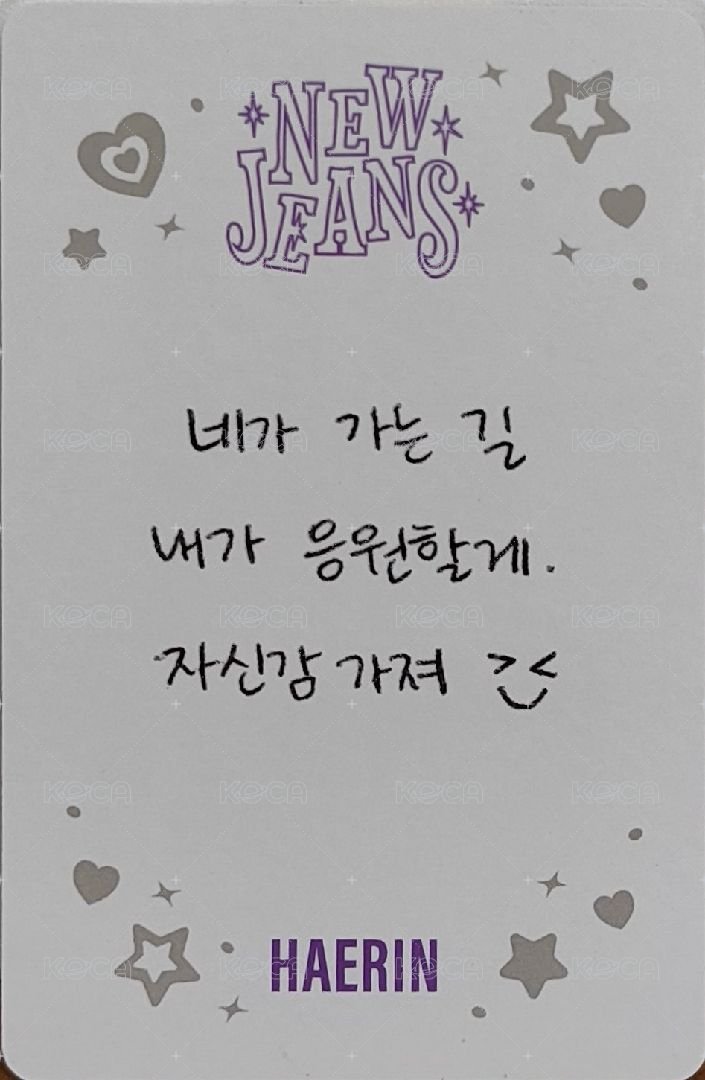 NEW
JEANS
네가 가는 길
내가 응원할게.
자신감 가져 ><
HAERIN
KOCA